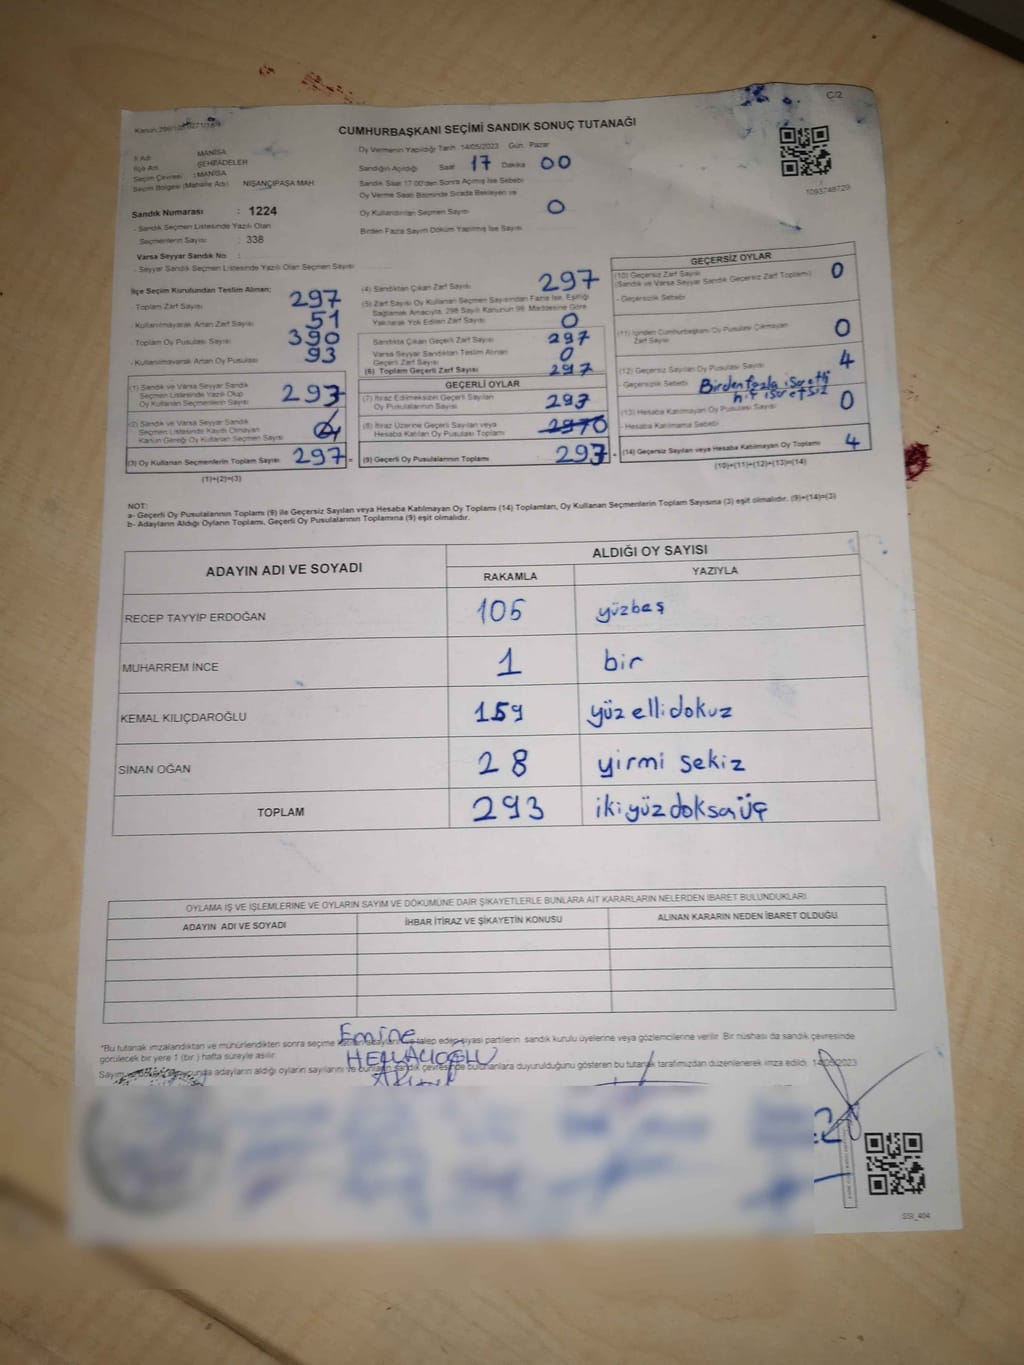 C/2
CUMHURBAŞKANI SEÇİMİ SANDIK SONUÇ TUTANAĞI
İl Adı MANİSA
İlçe Adı ŞEHZADELER
Seçim Çevresi : MANİSA
Seçim Bölgesi (Mahalle Adı) NİŞANCIPAŞA MAH.
Sandık Numarası : 1224
- Sandık Seçmen Listesinde Yazılı Olan
Seçmenlerin Sayısı : 338
Varsa Seyyar Sandık No :
- Seyyar Sandık Seçmen Listesinde Yazılı Olan Seçmen Sayısı
Oy Vermenin Yapıldığı Tarih 14/05/2023 Gün Pazar
Sandığın Açıldığı Saat 17 Dakika 00
Sandık Saat 17.00'den Sonra Açılmış İse Sebebi
Oy Verme Saati Bitiminde Sırada Bekleyen ve
Oy Kullandırılan Seçmen Sayısı 0
Birden Fazla Sayım Döküm Yapılmış İse Sayısı
1093748729
İlçe Seçim Kurulundan Teslim Alınan;
- Toplam Zarf Sayısı 297
- Kullanılmayarak Artan Zarf Sayısı 51
- Toplam Oy Pusulası Sayısı 390
- Kullanılmayarak Artan Oy Pusulası 93
(1) Sandık ve Varsa Seyyar Sandık
Seçmen Listesinde Yazılı Olup
Oy Kullanan Seçmenlerin Sayısı 297
(2) Sandık ve Varsa Seyyar Sandık
Seçmen Listesinde Kayıtlı Olmayan
Kanun Gereği Oy Kullanan Seçmen Sayısı
(3) Oy Kullanan Seçmenlerin Toplam Sayısı 297 =
(1)+(2)=(3)
(4) Sandıktan Çıkan Zarf Sayısı 297
(5) Zarf Sayısı Oy Kullanan Seçmen Sayısından Fazla İse, Eşitliği
Sağlamak Amacıyla, 298 Sayılı Kanunun 98. Maddesine Göre
Yakılarak Yok Edilen Zarf Sayısı 0
Sandıkta Çıkan Geçerli Zarf Sayısı 297
Varsa Seyyar Sandıktan Teslim Alınan
Geçerli Zarf Sayısı 0
(6) Toplam Geçerli Zarf Sayısı 297
GEÇERLİ OYLAR
(7) İtiraz Edilmeksizin Geçerli Sayılan
Oy Pusulalarının Sayısı 293
(8) İtiraz Üzerine Geçerli Sayılan veya
Hesaba Katılan Oy Pusulası Toplamı 297 0
(9) Geçerli Oy Pusulalarının Toplamı 293 +
GEÇERSİZ OYLAR
(10) Geçersiz Zarf Sayısı
(Sandık ve Varsa Seyyar Sandık Geçersiz Zarf Toplamı) 0
- Geçersizlik Sebebi
(11) İçinden Cumhurbaşkanı Oy Pusulası Çıkmayan
Zarf Sayısı 0
(12) Geçersiz Sayılan Oy Pusulası Sayısı 4
- Geçersizlik Sebebi Birden fazla işaretli
hiç işaretsiz
(13) Hesaba Katılmayan Oy Pusulası Sayısı 0
- Hesaba Katılmama Sebebi
(14) Geçersiz Sayılan veya Hesaba Katılmayan Oy Toplamı 4
(10)+(11)+(12)+(13)=(14)
NOT:
a- Geçerli Oy Pusulalarının Toplamı (9) ile Geçersiz Sayılan veya Hesaba Katılmayan Oy Toplamı (14) Toplamları, Oy Kullanan Seçmenlerin Toplam Sayısına (3) eşit olmalıdır. (9)+(14)=(3)
b- Adayların Aldığı Oyların Toplamı, Geçerli Oy Pusulalarının Toplamına (9) eşit olmalıdır.
ADAYIN ADI VE SOYADI ALDIĞI OY SAYISI
RAKAMLA YAZIYLA
RECEP TAYYİP ERDOĞAN 105 yüzbeş
MUHARREM İNCE 1 bir
KEMAL KILIÇDAROĞLU 159 yüz elli dokuz
SİNAN OĞAN 28 yirmi sekiz
TOPLAM 293 ikiyüzdoksaüç
OYLAMA İŞ VE İŞLEMLERİNE VE OYLARIN SAYIM VE DÖKÜMÜNE DAİR ŞİKAYETLERLE BUNLARA AİT KARARLARIN NELERDEN İBARET BULUNDUKLARI
ADAYIN ADI VE SOYADI İHBAR İTİRAZ VE ŞİKAYETİN KONUSU ALINAN KARARIN NEDEN İBARET OLDUĞU
*Bu tutanak imzalandıktan ve mühürlendikten sonra seçime katılan adaylara ve talep eden siyasi partilerin sandık kurulu üyelerine veya gözlemcilerine verilir. Bir nüshası da sandık çevresinde
görülecek bir yere 1 (bir ) hafta süreyle asılır.
Emine
adayların aldığı oyların sayılarını ve bunların sandık çevresinde bulunanlara duyurulduğunu gösteren bu tutanak tarafımızdan düzenlenerek imza edildi. 14/05/2023